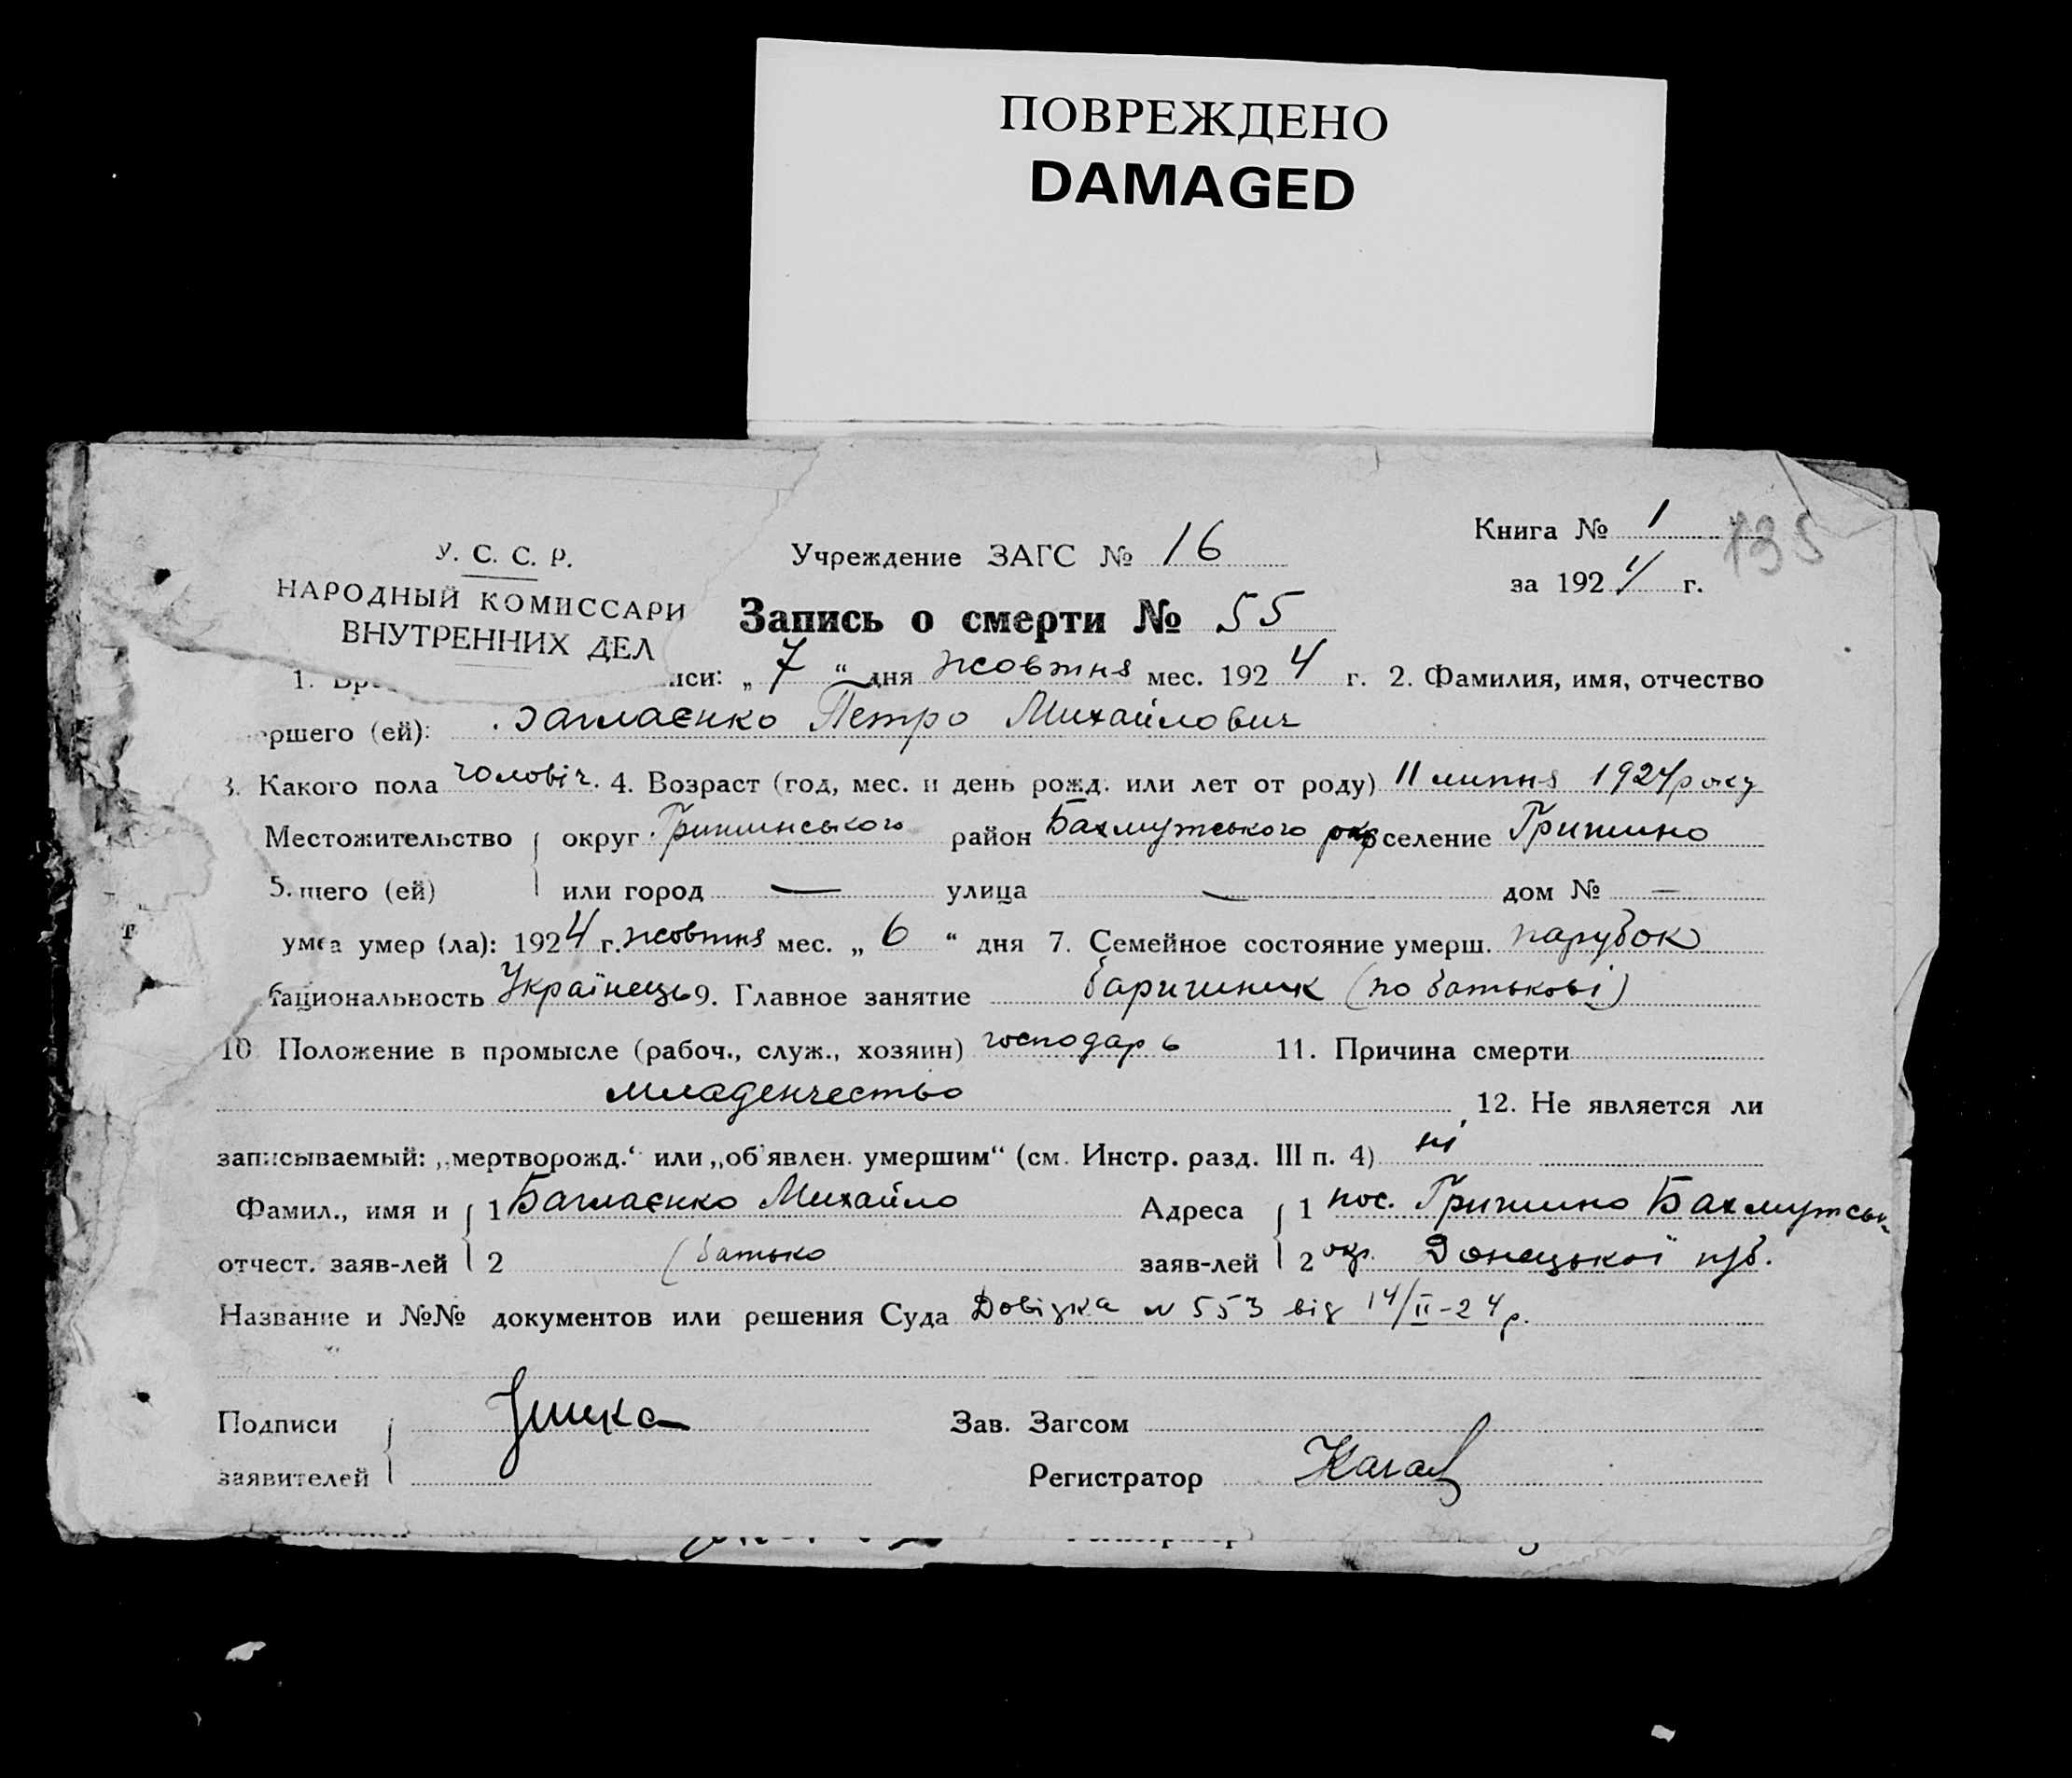 ПОВРЕЖДЕНО
DAMAGED
Книга № 1
135
У. С. С. Р.
Учреждение ЗАГС № 16
за 1924 г.
НАРОДНЫЙ КОМИССАРИ
Запись о смерти № 55
ВНУТРЕННИХ ДЕЛ
1. иси: „ 7 “ дня жовтня мес. 1924 г. 2. Фамилия, имя, отчество
ршего (ей): Баглаєнко Петро Михайлович
3. Какого пола чоловіч. 4. Возраст (год, мес. и день рожд. или лет от роду) 11 липня 1924 року
Местожительство округ Гришинського район Бахмутського окр селение Гришино
5. шего (ей) или город — улица — дом № —
умер (ла): 1924 г. жовтня мес. „ 6 “ дня 7. Семейное состояние умерш. парубок
национальность Українець 9. Главное занятие баришник (по батькові)
10 Положение в промысле (рабоч., служ., хозяин) господарь 11. Причина смерти
младенчество 12. Не является ли
записываемый: „мертворожд.“ или „об'явлен. умершим“ (см. Инстр. разд. III п. 4) ні
Фамил., имя и 1 Баглаєнко Михайло Адреса 1 пос. Гришино Бахмутськ.
отчест. заяв-лей 2 (батько заяв-лей 2 окр. Донецької губ.
Название и №№ документов или решения Суда Довідка № 553 від 14/II-24 р.
Подписи Зав. Загсом
заявителей Регистратор